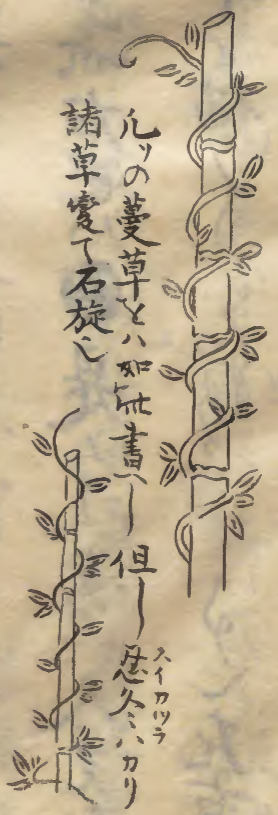 凡ソノ蔓草ヲハ如此書ヘシ 但シ忍冬ハカリ
スイカツラ
諸草変て石旋シ